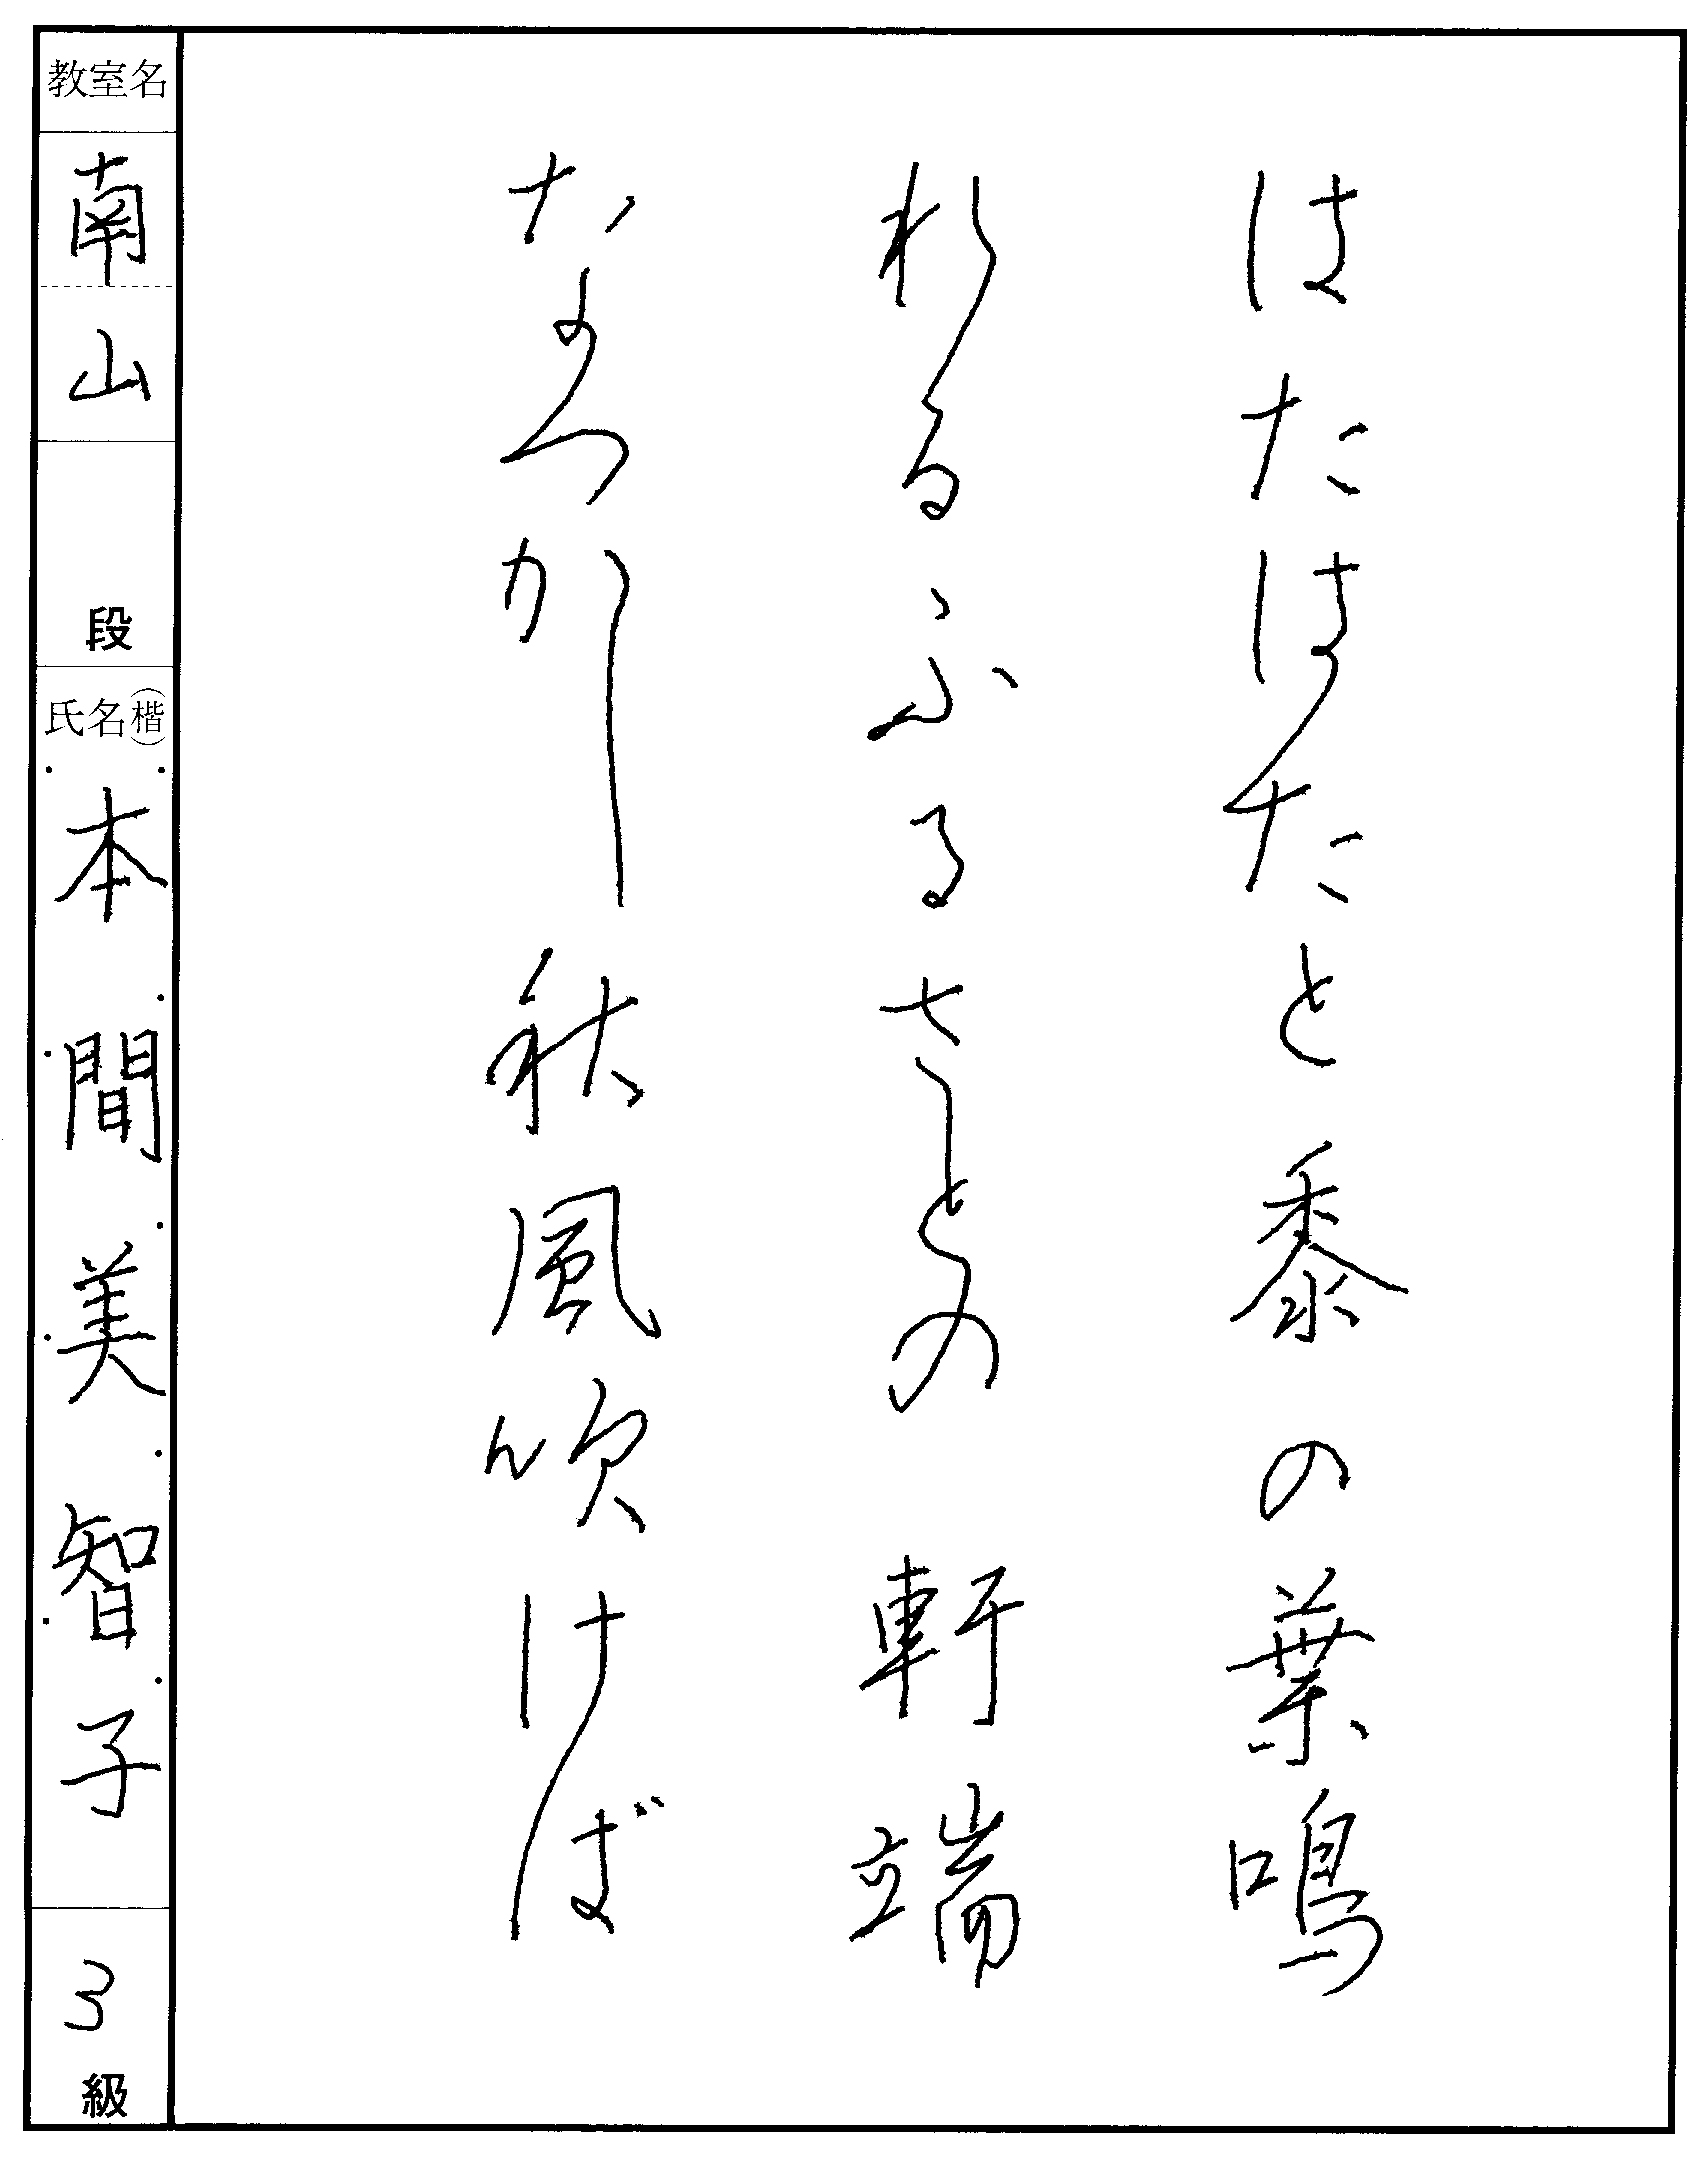 はたはたと黍の葉鳴
れるふるさとの軒端
なつかし秋風吹けば
教室名
南山
段
氏名(楷)
本間美智子
3級